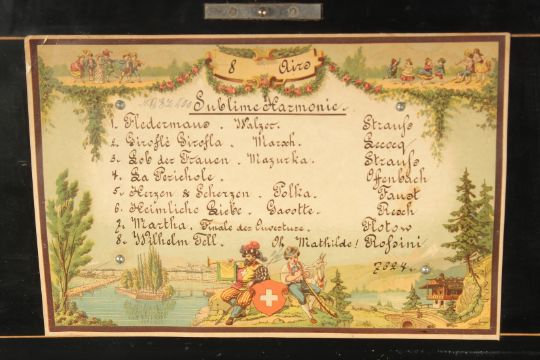 8 Airs
Sublime Harmonie.
1. Fledermaus. Walzer. Strauss
2. Giroflé Girofla. Marsch. Lecocq
3. Lob der Frauen. Mazurka. Strauss
4. La Perichole. Offenbach
5. Herzen & Scherzen. Polka. Faust
6. Heimliche Liebe. Gavotte. Resch
7. Martha. Finale des Ouverture. Flotow
8. Wilhelm Tell. Oh Mathilde! Rossini
7824.